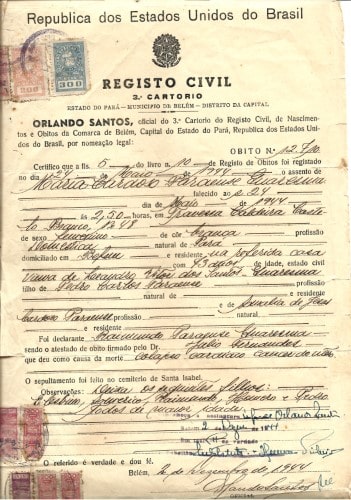 Republica dos Estados Unidos do Brasil
300
300
REGISTO CIVIL
3.º CARTORIO
ESTADO DO PARÁ - MUNICIPIO DE BELÉM - DISTRITO DA CAPITAL
ORLANDO SANTOS, oficial do 3.º Cartorio do Registo Civil, de Nascimentos e Obitos da Comarca de Belém, Capital do Estado do Pará, Republica dos Estados Unidos do Brasil, por nomeação legal:
OBITO N.º
Certifico que a fls 5 do livro n.º 10 de Registo de Obitos foi registado
no dia 24 de Maio de 1944 o assento de
Maria Cardoso Paraense Quaresma
falecido a 24
dia de Maio de 1944
ás 2,50 horas, em Travessa Castelo Branco 1248
de sexo feminino de côr branca profissão
domestica natural de Pará
domiciliado em Belem e residente na referida casa
com 73 anos de idade, estado civil
viuva de dos Santos Quaresma
filho de Pedro Carlos Paraense profissão
natural de
e residente e de de Jesus
Cardoso Paraense profissão
natural de
e residente
Foi declarante Raimundo Paraense Quaresma
sendo o atestado de obito firmado pelo Dr. Julio Fernandes
que deu como causa da morte colapso cardiaco
O sepultamento foi feito no cemiterio de Santa Isabel.
Observações: Deixa os seguintes filhos:
Raimundo e Pedro
todos de maior idade
O referido é verdade e dou fé.
Belém, de Dezembro de 1944